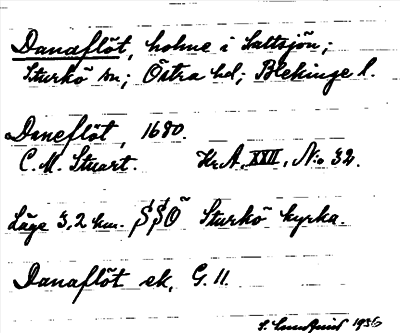 Danaflöt, holme i Saltsjön;
Sturkö sn; Östra hd; Blekinge l.
Daneflöt, 1680.
C. M. Stuart. Kr.A. XXII, No 32.
Läge 3,2 km. SSO Sturkö kyrka.
Danaflöt ek, G. 11.
S. 1936